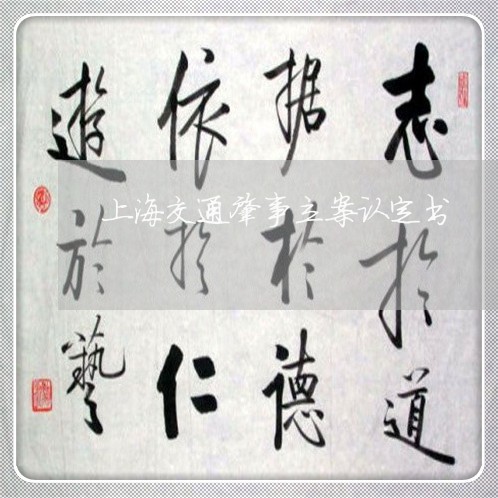 志於道
据於德
依於仁
遊於藝
上海交通肇事立案认定书